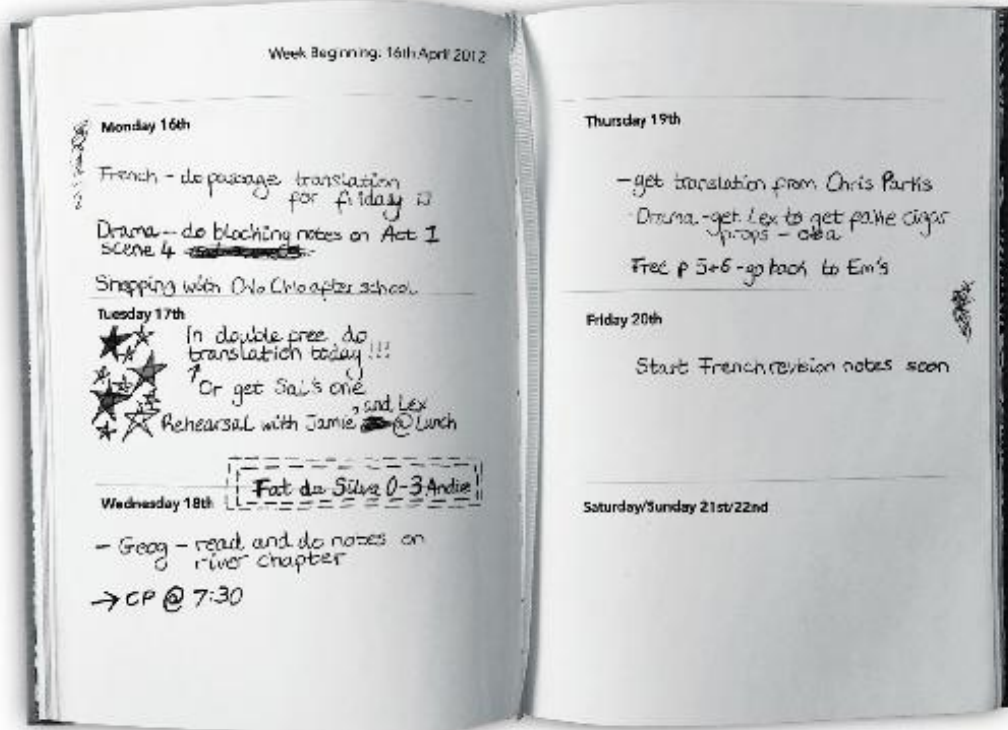 Week Beginning: 16th April 2012
Monday 16th
French - do passage translation
for friday
Drama - do blocking notes on Act 1
scene 4
Shopping with Chlo after school
Tuesday 17th
In double free do
translation today !!!
Or get Sal's one
Rehearsal with Jamie, and Lex @ Lunch
Fat da Silva 0-3 Andie
Wednesday 18th
- Geog - read and do notes on
river chapter
→ CP @ 7:30
Thursday 19th
- get translation from Chris Parkis
Drama - get Lex to get fake cigar
props -
Free p 5+6 - go back to Em's
Friday 20th
Start French revision notes soon
Saturday/Sunday 21st/22nd